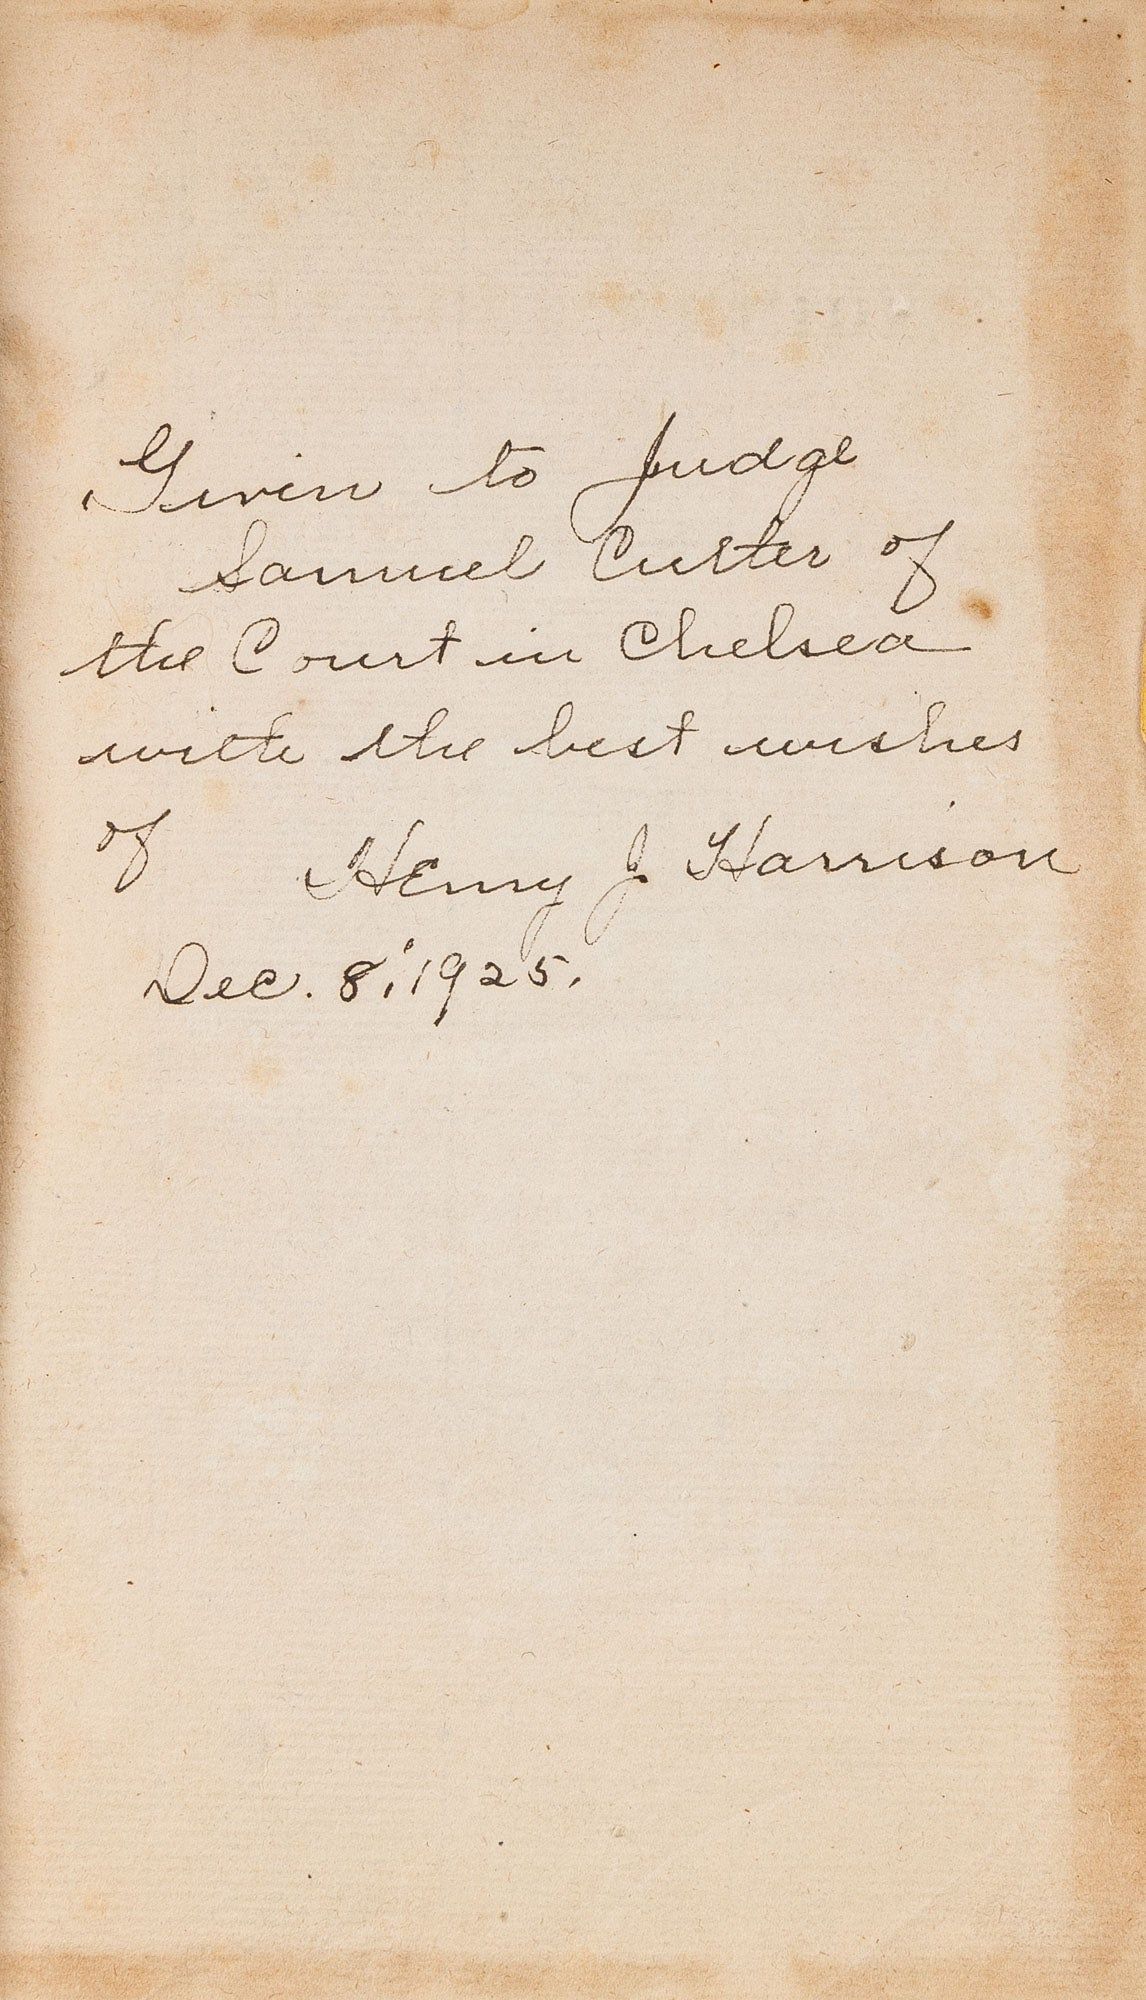 Given to Judge
Samuel Custer of
the Court in Chelsea
with the best wishes
of Henry J Harrison
Dec. 8, 1925.